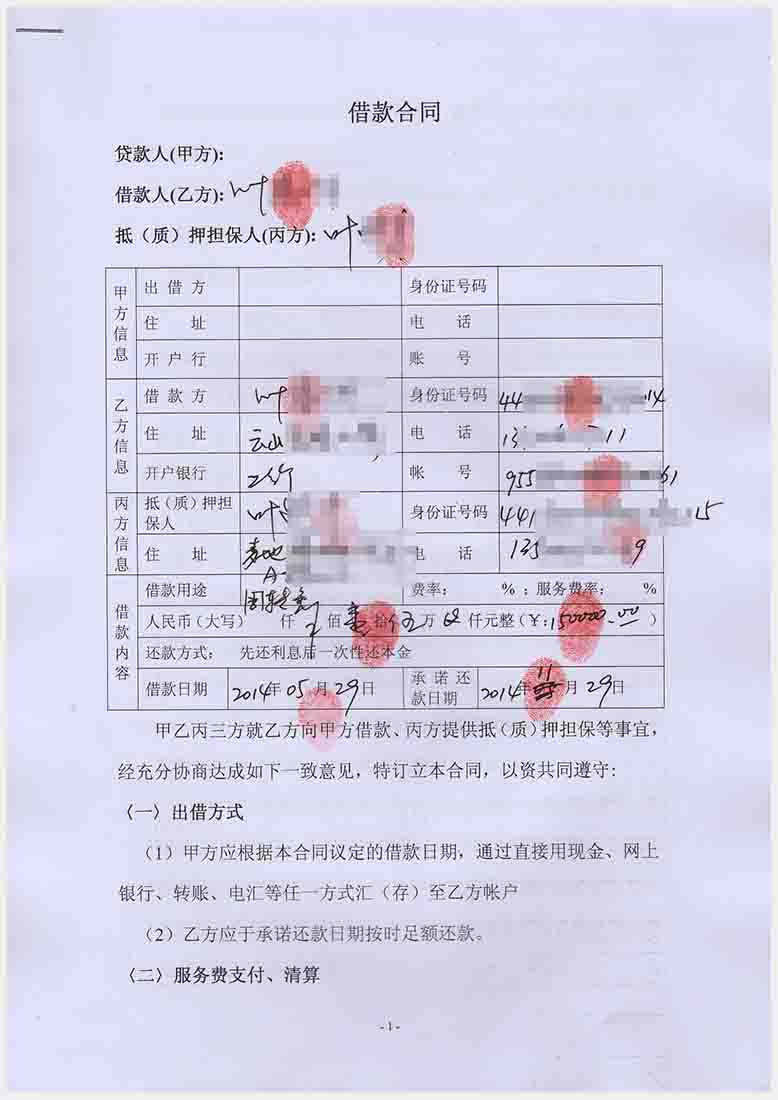 借款合同
贷款人(甲方):
借款人(乙方): 叶
抵（质）押担保人(丙方): 叶
甲方信息
出借方 身份证号码
住址 电话
开户行 账号
乙方信息
借款方 叶 身份证号码 44 14
住址 云山 电话 13 11
开户银行 工行 帐号 955 61
丙方信息
抵（质）押担保人 叶 身份证号码 441 15
住址 麦地 A- 电话 135 9
借款内容
借款用途 费率： %；服务费率： %
人民币（大写） 仟 佰 壹拾伍万 仟元整（¥:150000.00）
还款方式： 先还利息后一次性还本金
借款日期 2014年05月29日 承诺还款日期 2014年11月29日
甲乙丙三方就乙方向甲方借款、丙方提供抵（质）押担保等事宜，
经充分协商达成如下一致意见，特订立本合同，以资共同遵守:
〈一〉出借方式
（1）甲方应根据本合同议定的借款日期，通过直接用现金、网上
银行、转账、电汇等任一方式汇（存）至乙方帐户
（2）乙方应于承诺还款日期按时足额还款。
〈二〉服务费支付、清算
-1-